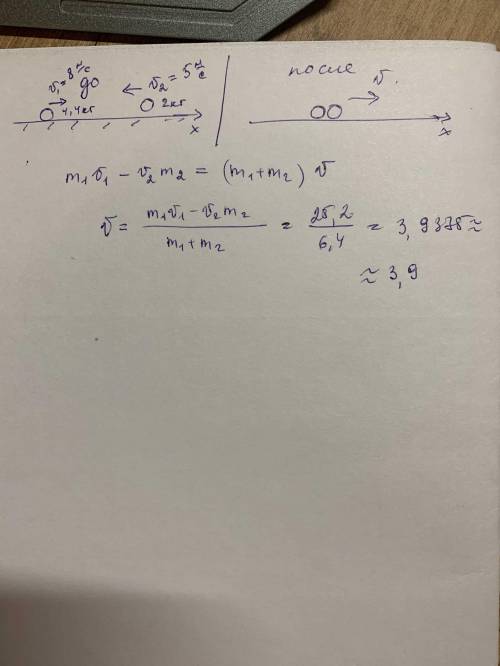 до
v₁ = 8 м/с
v₂ = 5 м/с
4,4кг
2кг
x
после
v
x
m₁v₁ - v₂m₂ = (m₁+m₂) v
v = (m₁v₁ - v₂m₂)/(m₁+m₂) = 25,2/6,4 = 3,9375 ≈
≈ 3,9